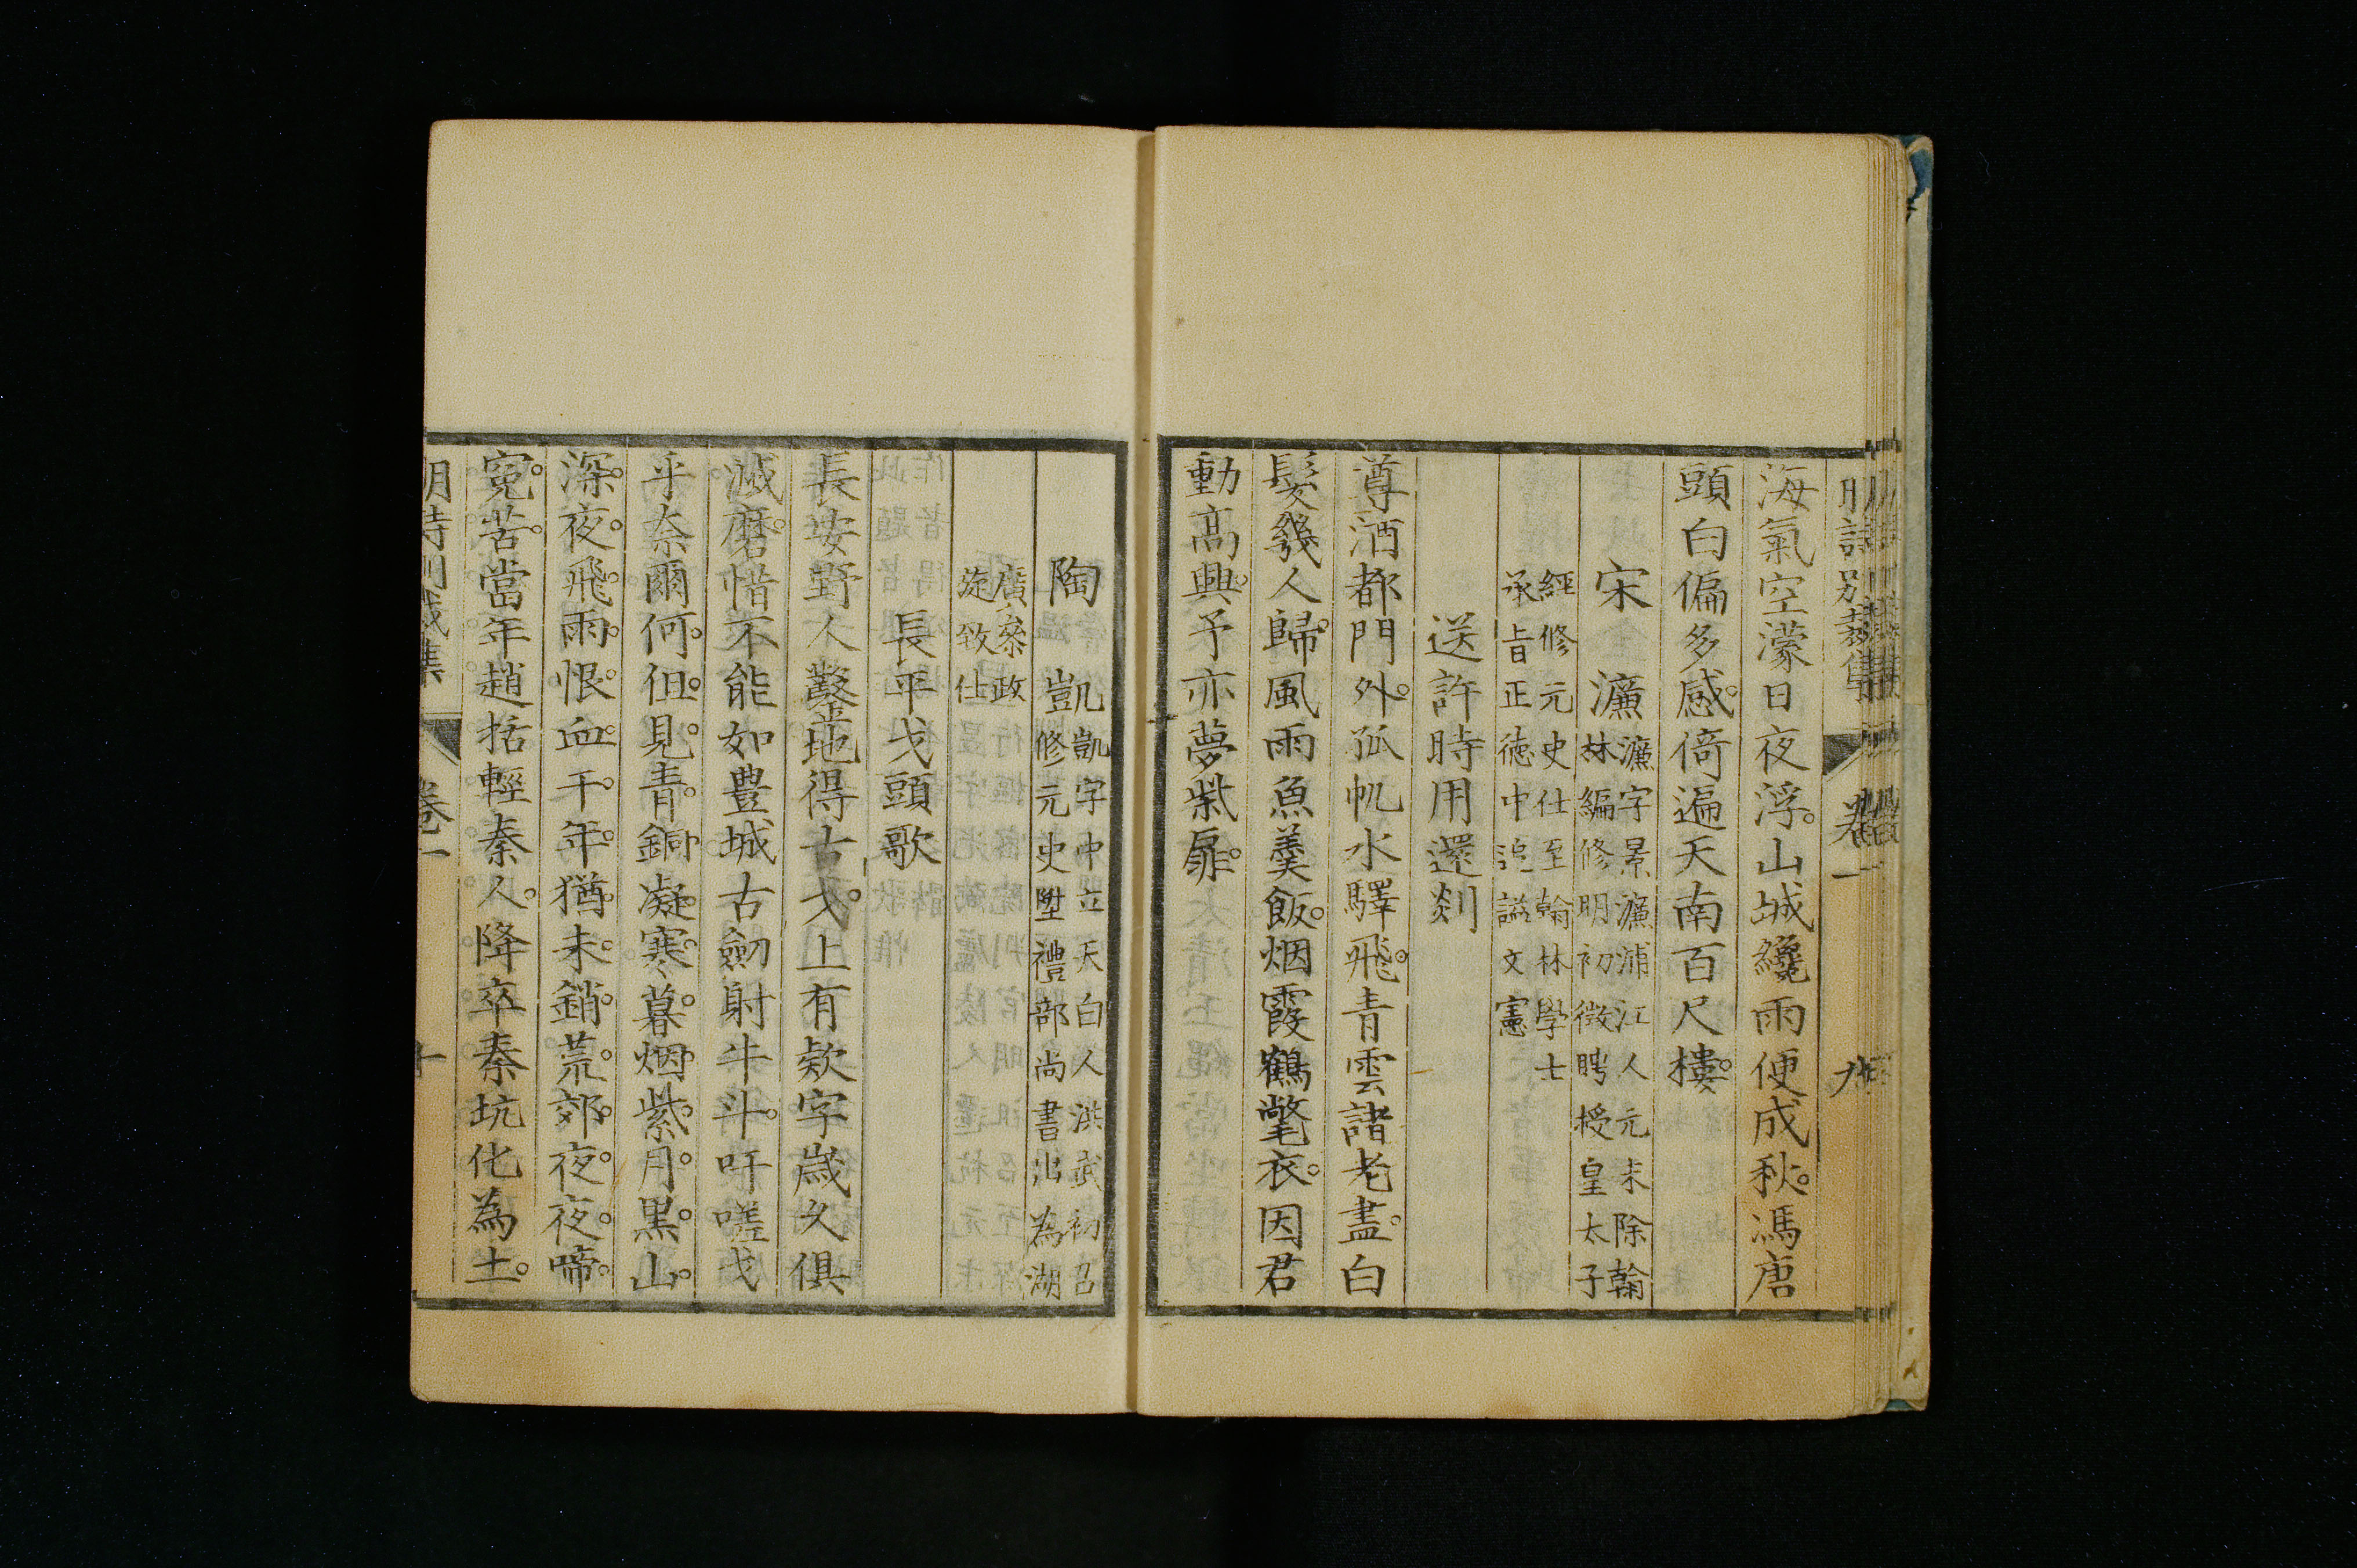 明詩別裁集 卷一 九
海氣空濛日夜浮山城纔雨便成秋馮唐
頭白偏多感倚遍天南百尺樓
宋濂
濂字景濂浦江人元末除翰
林編修明初徵聘授皇太子
經修元史仕至翰林學士
承旨正德中追諡文憲
送許時用還剡
尊酒都門外孤帆水驛飛青雲諸老盡白
髮幾人歸風雨魚羹飯烟霞鶴氅衣因君
動高興予亦夢柴扉
陶凱
凱字中立天台人洪武初召
修元史陞禮部尚書出為湖
廣叅政
旋致仕
長平戈頭歌
長安野人鑿地得古戈上有欵字歲久俱
滅磨惜不能如豊城古劒射牛斗吁嗟戈
乎奈爾何但見青銅凝寒暮烟紫月黒山
深夜飛雨恨血千年猶未銷荒郊夜夜啼
寃苦當年趙括輕秦人降卒秦坑化為土
明詩別裁集 卷一 十